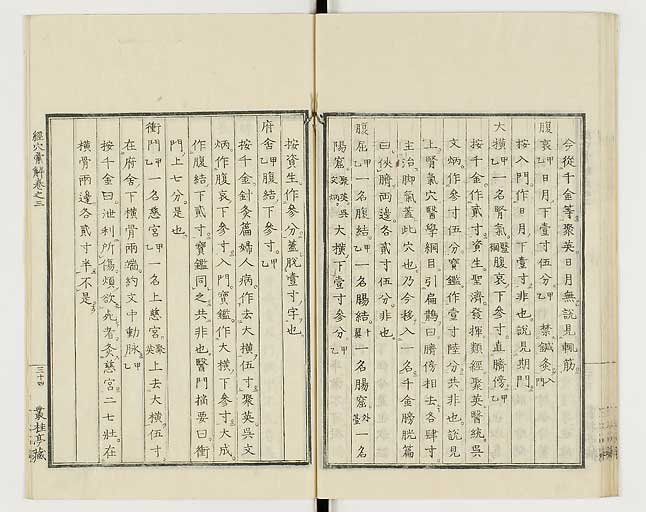 今從千金等聚英日月無說見輒筋
腹哀甲乙日月下壹寸伍分甲乙禁鍼灸入門
按入門作日月下壹寸非也說見期門
大橫甲乙一名腎氣醫綱腹哀下參寸直臍傍甲乙
按千金作貳寸資生聖濟發揮類經聚英醫統吳
文炳作參寸伍分寶鑑作壹寸陸分共非也說見
上腎氣穴醫學綱目引扁鵲曰臍傍相去各肆寸
主治脚氣蓋此穴也乃今移入一名千金膀胱篇
曰俠臍兩邊各貳寸伍分非也
腹屈甲乙一名腹結甲乙一名腸結一名腸窟外臺一名
陽窟聚英吳文炳大橫下壹寸參分甲乙
按資生作參分蓋脫壹寸字也
府舍甲乙腹結下參寸甲乙
按千金針灸篇婦人病作去大橫伍寸聚英吳文
炳作腹哀下參寸入門寶鑑作大橫下參寸大成
作腹結下貳寸寶鑑同之共非也醫門摘要曰衝
門上七分是也
衝門甲乙一名慈宮甲乙一名上慈宮聚英上去大橫伍寸
在府舍下橫骨兩端約文中動脉甲乙
按千金曰泄利所傷煩欲死者灸慈宮二七壯在
橫骨兩邊各貳寸半不是
經穴彙解卷之三
三十四
叢桂亭藏